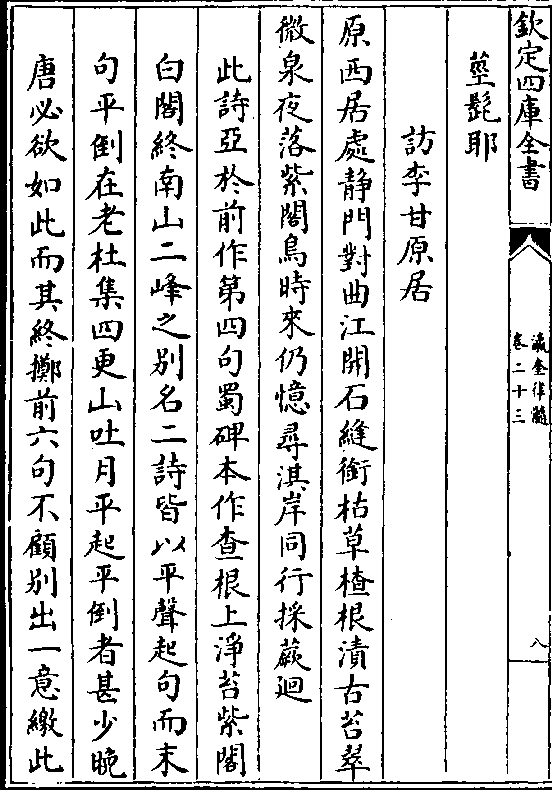 欽定四庫全書
瀛奎律髓
卷二十三
八
莖髭耶
訪李甘原居
原西居處静門對曲江開石縫銜枯草楂根漬古苔翠
微泉夜落紫閣鳥時來仍憶尋淇岸同行採蕨廻
此詩亞於前作第四句蜀碑本作查根上浄苔紫閣
白閣終南山二峰之别名二詩皆以平聲起句而末
句平倒在老杜集四更山吐月平起平倒者甚少晚
唐必欲如此而其終擲前六句不顧别出一意繳此